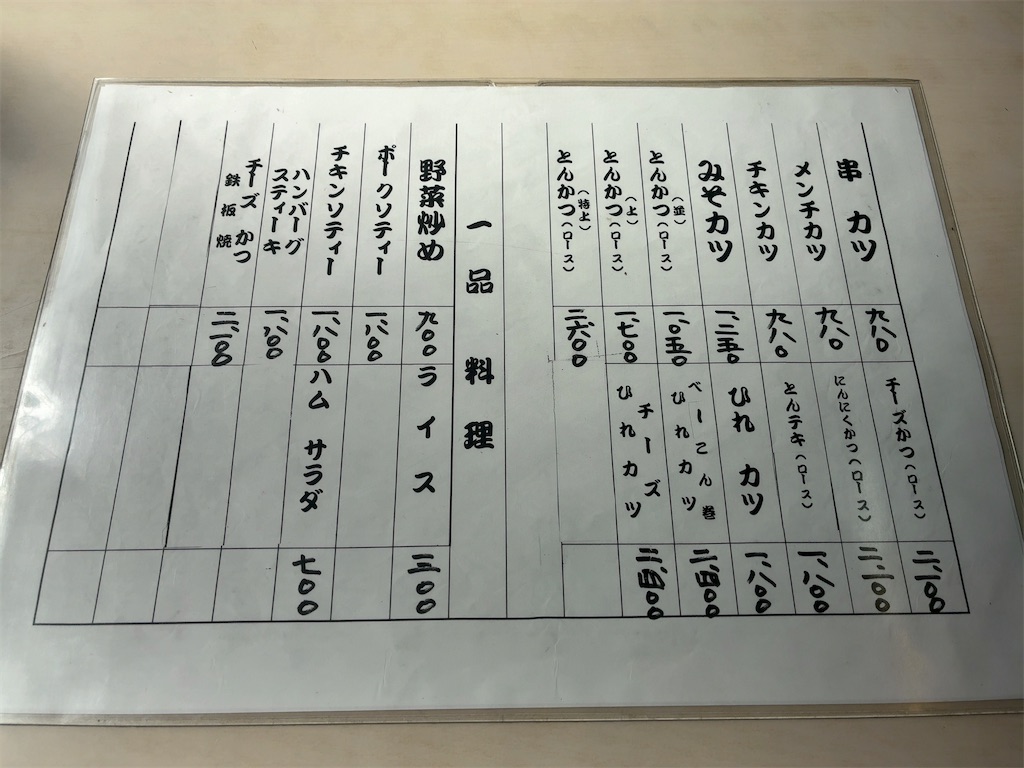 串カツ
九八〇
メンチカツ
九八〇
チキンカツ
九八〇
みそカツ
一、二五〇
とんかつ(ロース)(並)
一、〇五〇
とんかつ(ロース)(上)
一、七〇〇
とんかつ(ロース)(特上)
二、六〇〇
チーズかつ(ロース)
二、一〇〇
にんにくかつ(ロース)
二、一〇〇
とんテキ(ロース)
一、八〇〇
ひれカツ
一、八〇〇
べーこん巻
ひれカツ
二、四〇〇
チーズ
ひれカツ
二、四〇〇
一品料理
野菜炒め
九〇〇
ポークソティー
一、八〇〇
チキンソティー
一、八〇〇
ハンバーグ
スティーキ
一、八〇〇
チーズかつ
鉄板焼
二、二〇〇
ライス
三〇〇
ハムサラダ
七〇〇